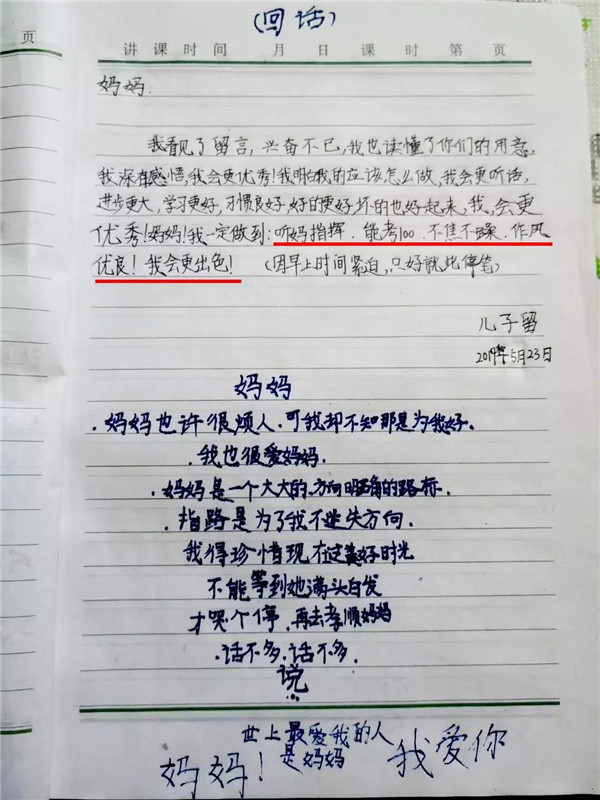 (回话)
页
讲课时间 月 日 课时 第 页
妈妈:
我看见了留言,兴奋不已,我也读懂了你们的用意,
我深有感悟,我会更优秀!我明白我的应该怎么做,我会更听话,
进步更大,学习更好,习惯良好,好的更好,坏的也好起来,我,会更
优秀!妈妈!我一定做到:听妈指挥.能考100.不焦不躁.作风
优良!我会更出色!(因早上时间紧迫,只好就此停笔)
儿子留
2019年5月23日
妈妈
.妈妈也许很烦人.可我却不知那是为我好.
.我也很爱妈妈.
.妈妈是一个大大的.方向明确的路标.
.指路是为了我不迷失方向.
我得珍惜现在这美好时光
不能等到她满头白发
才哭个停.再去孝顺妈妈
.话不多.话不多.
说...
世上最爱我的人
是妈妈
妈妈!我爱你